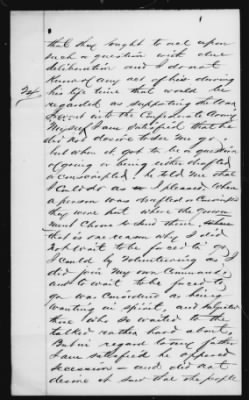 that they ought to act upon
such a question with due
deliberation and I do not
know of any act of his during
his life time that would be
regarded as supporting the War,
24 I went into the Confederate Army
Myself I am satisfied that he
did not desire to see me go -
but when it got to be a question
of going or being either drafted
or conscripted, he told me that
I could do as I pleased. When
a person was drafted or Conscripted
they were sent where the Govern
ment Chose to send them,
that is one reason why I did
not wait to be forced to go,
I could by Volunteering as I
did join My own Command,
and to wait to be forced to
go was considered as being
wanting in spirit, and
those who so waited to be
talked rather hard about,
But in regard to my father
I am satisfied he opposed
secession - and did not
desire it said that the people